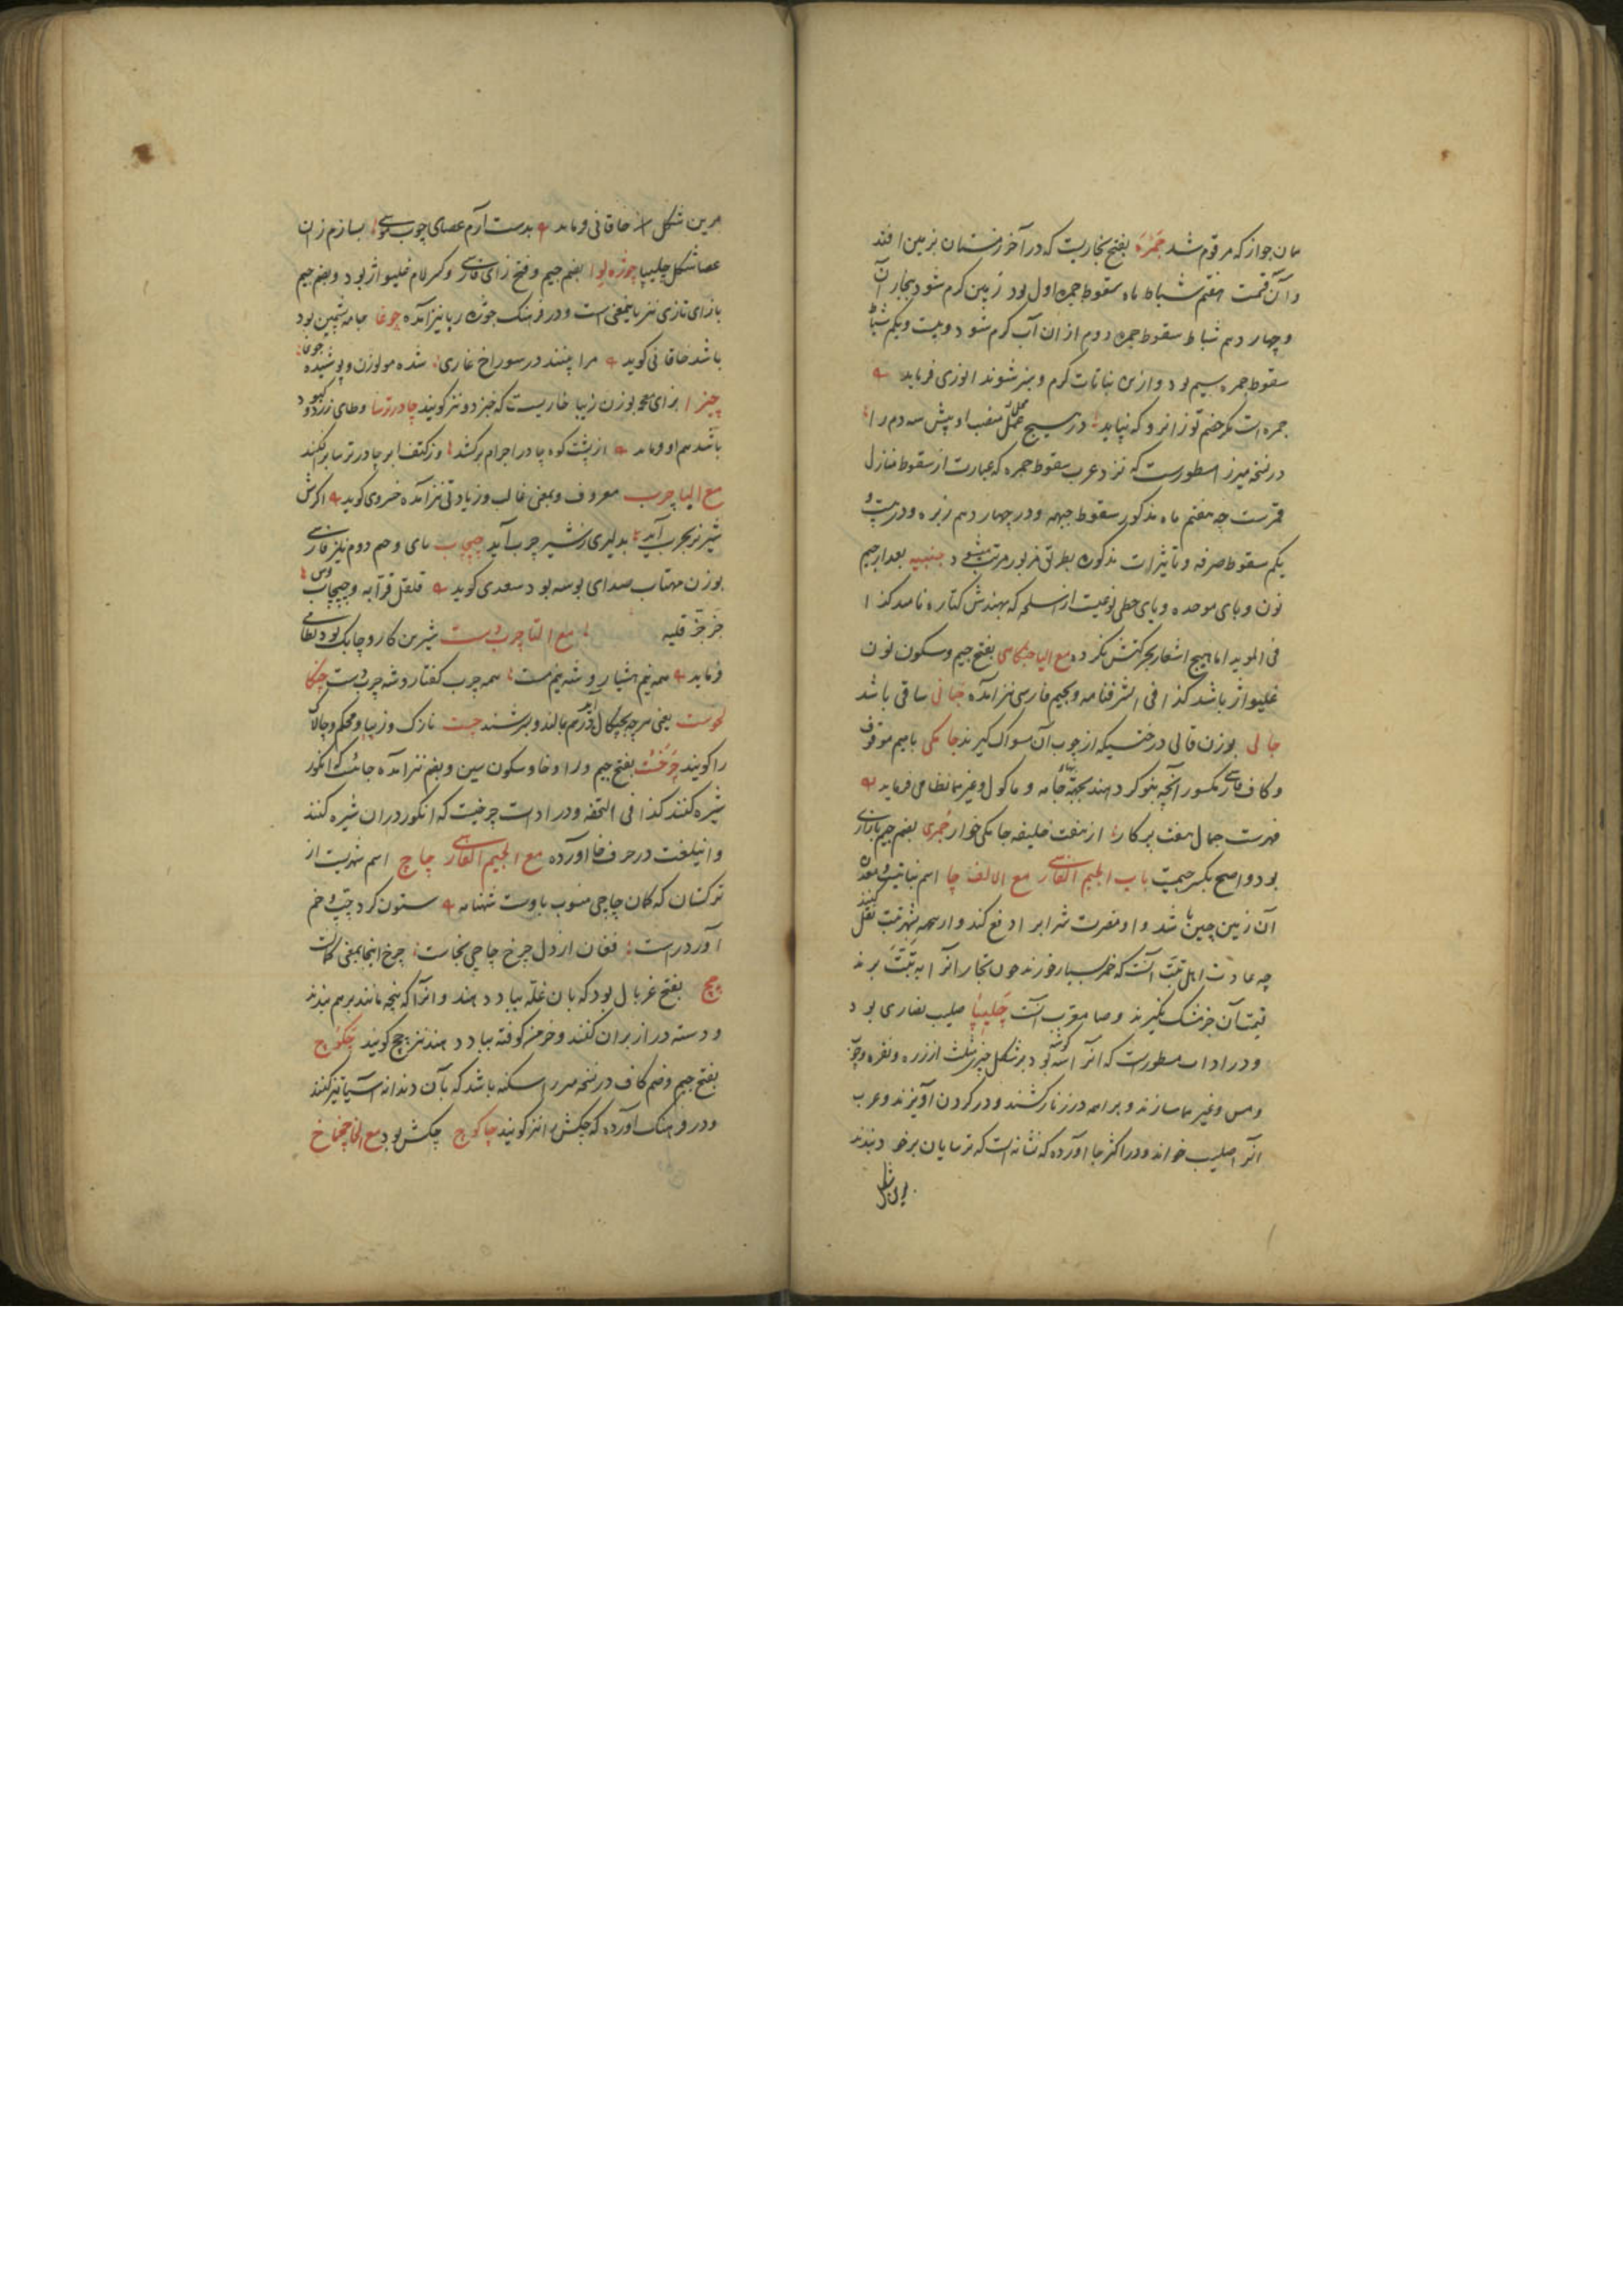 مان جواز که مرقوم شد جمره بفتح بخاریست که در آخر زمستان بزمین افتد
و آن قسمت هفتم شباط ماه سقوط جمره اول بود زمین کرم شود بخار آن
و چهاردهم شباط سقوط جمره دوم از آن آب کرم شود و بیست و یکم شباط
سقوط جمره سیم بود و ازین نباتات کرم و سبز شوند انوری فرماید
جمره است مکر خصم تو زانرو که نپاید در سیج منصب او پیش سه دم را
در نسخه میرزا مسطورست که نزد عرب سقوط جمره که عبارت از سقوط منازل
قمرست چه هفتم ماه مذکور سقوط جبهه و در چهاردهم زبره و در بیست و
یکم سقوط صرفه و تاثیرات مذکوره بطریق مزبور مرتب میشود جنبیه بعد از جیم
نون و بای موحده و یای حطی نوعیست از اسلحه که بهندش کتاره نامند کذا
فی الموید اما هیچ اشعار بحرکتش نکرده مع الیا جنکاهی بفتح جیم و سکون نون
غلیواژ باشد کذا فی الشرفنامه و بجیم فارسی نیز آمده جانی ساقی باشد
جالی بوزن قالی درختیکه از چوب آن مسواک کیرند جامکی بامیم موقوف
و کاف فارسی مکسور آنچه بنوکر دهند بجهة بهاء جامه و ماکول و غیرها نظامی فرماید
فهرست جمال هفت پرکار از هفت خلیفه جامکی خوار جمری بضم جیم بازاری
بود و اصح بکسر جیمست باب الجیم الفارسی مع الالف چا اسم نباتیست و معدن
آن زمین چین باشد و او مضرت شراب را دفع کند و از همه شهر تبت نقل کنند
چه عادت اهل تبت آنست که خمر بسیار خورند چون تجار آنرا به تبت برند
قیمت آن جز مشک نکیرند و صا معرب آنست چلیپا صلیب نصاری بود
و در ادات مسطورست که آنرا سه کوشه بود بر شکل چیزی مثلث از زر و نقره و چوب
و مس و غیرها سازند و براهمه در زنار کشند و در کردن آویزند و عرب
آنرا صلیب خواند و در اکثر جا آورده که نشانه است که ترسایان بر خود بندند
برین شکل
برین شکل خاقانی فرماید بدست آرم عصای چوب موسی بسازم زان
عصا شکل چلیپا چوژه لوا بضم جیم و فتح زای فارسی و کسر لام غلیواژ بود و بضم جیم
بازای تازی نیز باینمعنی است و در فرهنک جوژه ربا نیز آمده چوغا جامه پشمین بود
باشد خاقانی کوید مرا بینند در سوراخ غاری شده مولوزن و پوشیده جوغا
چیزا بزای معجمه بوزن زیبا خاریست که خبزدو نیز کویند چادر ترسا وطای زرد و کبود
باشد هم او فرماید از پشت کوه چادر احرام برکشد وز کتف ابر چادر ترسا برافکند
مع البا چرب معروف و بمعنی غالب و زیادتی نیز آمده خسروی کوید اکرش
شیر نر بحرب آید بدلیری ز شیر چرب آید چپچاپ بای و جیم دوم نیز فارسی
بوزن مهتاب صدای بوسه بود سعدی کوید قلقل قرابه و چپچاپ بوس
خزخز قلیه مع التا چرب دست شیرین کار و چابک بود نظامی
فرماید همه نیم هشیار و شه نیم مست همه چرب کفتار و شه چرب دست چنکا
لحوست یعنی هرچه بچنکال آید در هم مالند و برشند چست نازک و زیبا و محکم و چالاک
را کویند چرخست بفتح جیم و را و خا و سکون سین و بضم نیز آمده جائست که انکور
شیره کنند کذا فی التحفه و در ادات چرخیست که انکور در آن شیره کنند
و اینلغت در حرف خا آورده مع الجیم الفارسی چاچ اسم شهریست از
ترکستان که کمان چاچی منسوب باوست شهنامه ستون کرد چپ و خم
آورد راست فغان از دل چرخ چاچی بخاست چرخ اینجا بمعنی کمانست
چچ بفتح غربال بود که بآن غله بباد دهند و آنرا که پنجه مانند بر هم بندند
و دسته دراز بر آن کنند و خرمن کوفته بباد دهند نیز چچ کویند چکوچ
بفتح جیم و ضم کاف در نسخه میرزا اسکنه باشد که بآن دندانه آسیا تیز کنند
و در فرهنک آورده که چکش را نیز کویند چاکوچ چکش بود مع الخا چخماخ